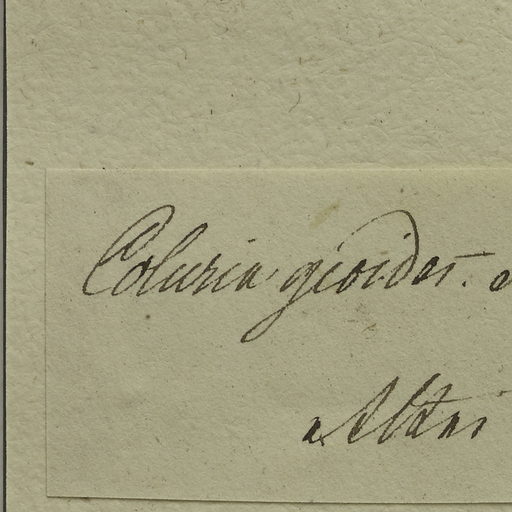 Coluria gioides.
Altai